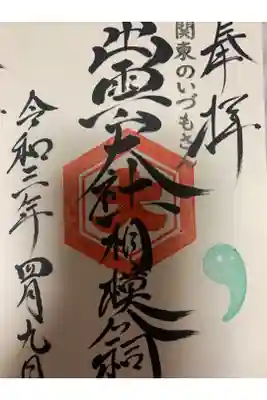 奉拝
関東のいづもさん
出雲大社相模分祠
令和三年四月九日